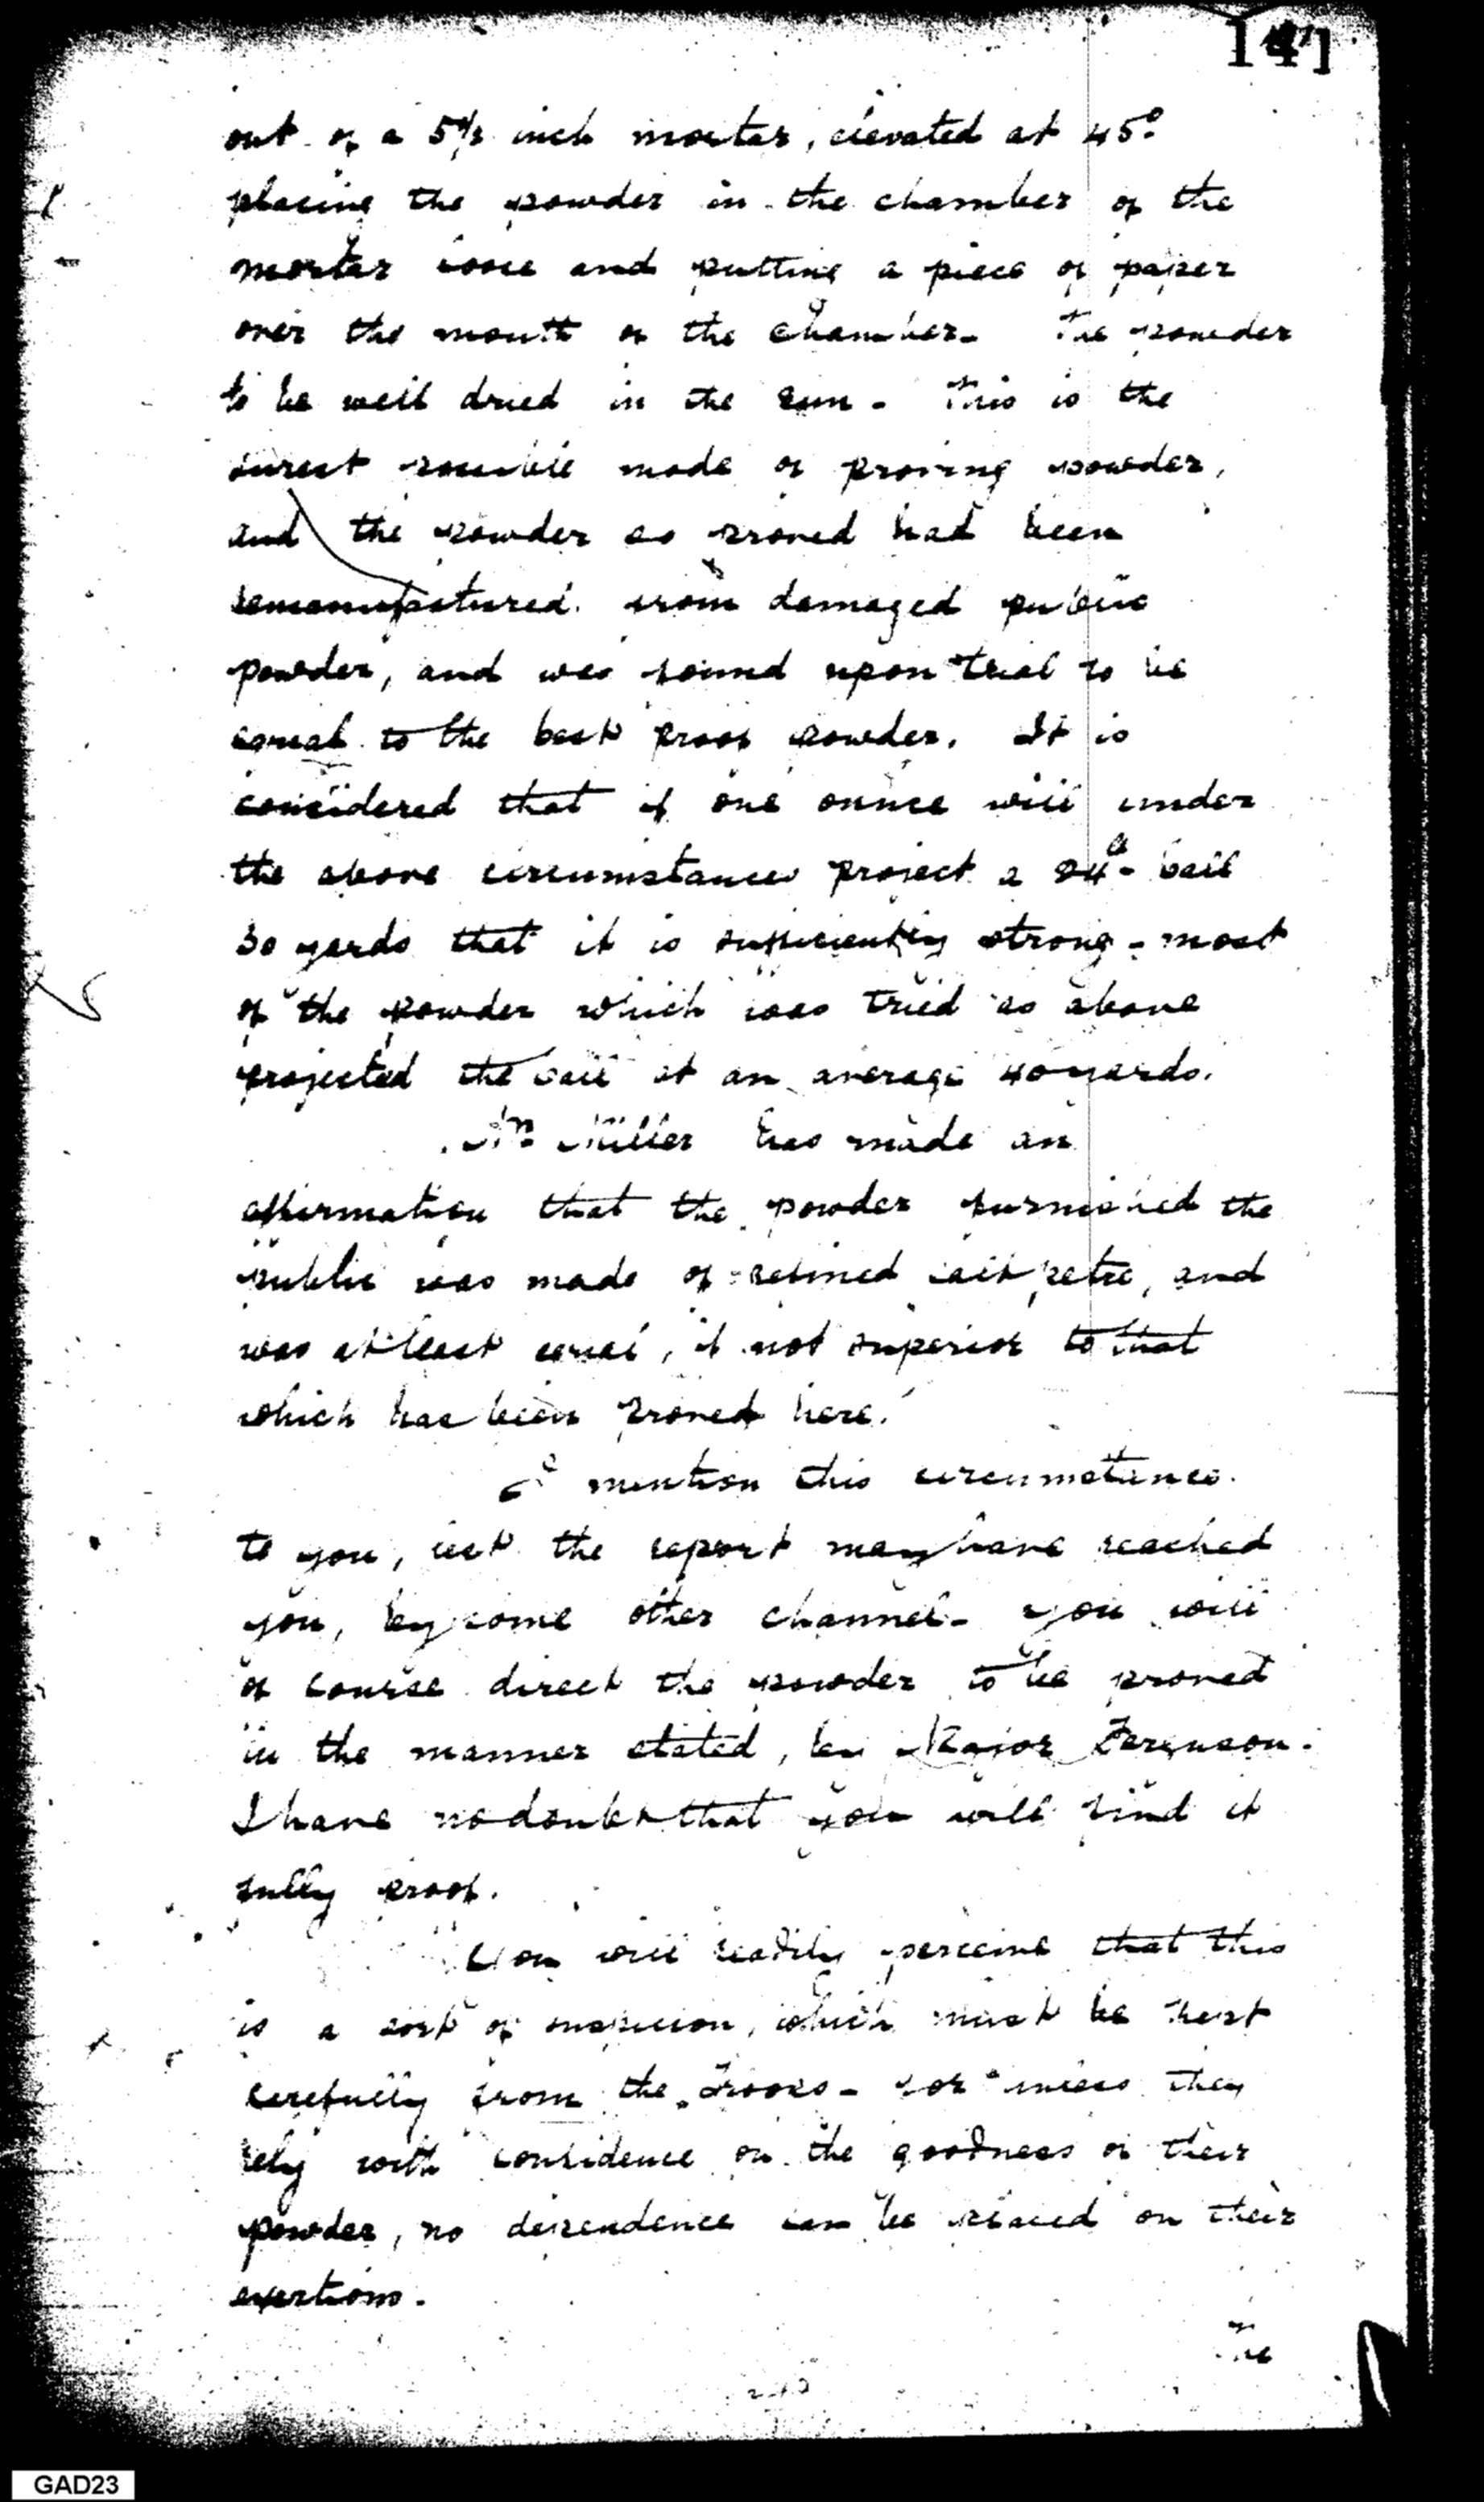 141
out of a 5½ inch mortar, elevated at 45°
placing the powder in the chamber of the
mortar loose and putting a piece of paper
over the mouth of the chamber. The powder
to be well dried in the sun - This is the
surest possible mode of proving powder,
and the powder so proved had been
remanufactured from damaged public
powder, and was found upon trial to be
equal to the best proof powder. It is
considered that if one ounce will under
the above circumstances project a 24lb ball
30 yards that it is sufficiently strong - most
of the powder which was tried as above
projected the ball at an average 40 yards.
Mr Miller has made an
affirmation that the powder furnished the
public was made of refined salt petre, and
was at least equal, if not superior to that
which has been proved here.
I mention this circumstance
to you, lest the report may have reached
you, by some other channel - you will
of course direct the powder to be proved
in the manner stated, by Major Ferguson.
I have no doubt that you will find it
fully proof.
You will readily perceive that this
is a sort of suspicion, which must be kept
carefully from the Troops - for unless they
rely with confidence on the goodness of their
powder, no dependence can be placed on their
exertions.
The
GAD23